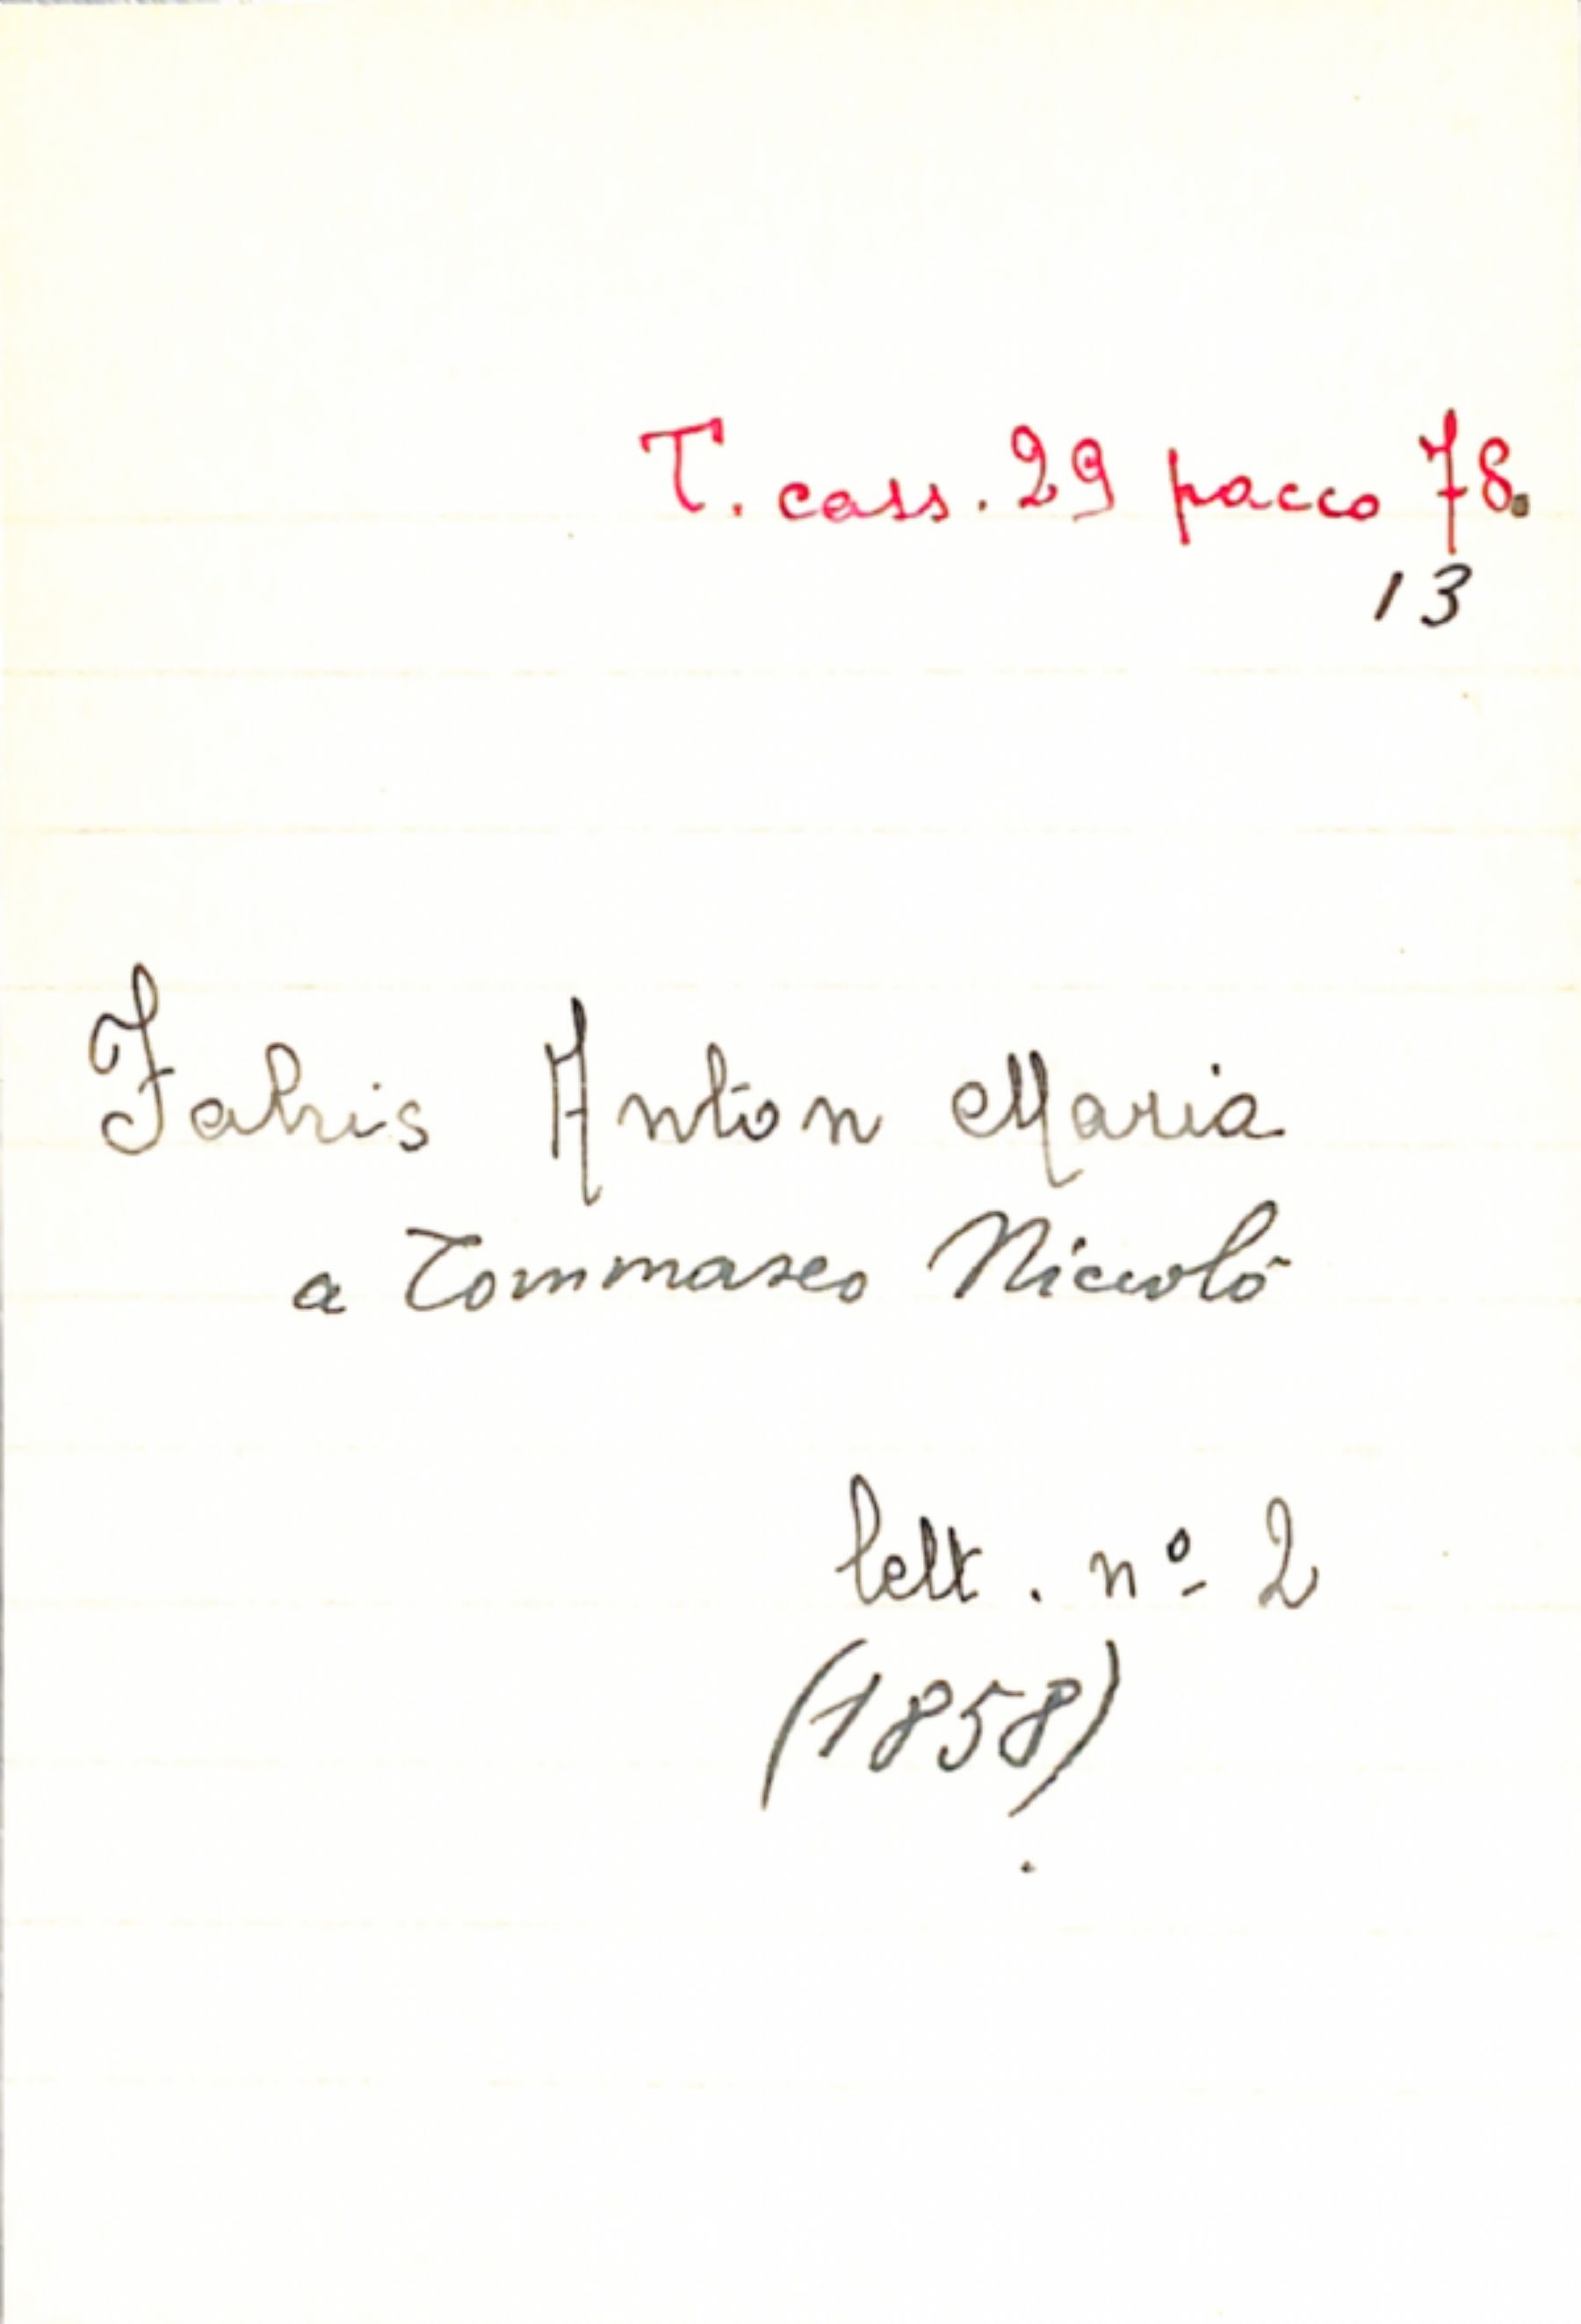 T. cass. 29 pacco 78.
13
Fabris Anton Maria
a Tommaseo Niccolò
lett. nº 2
(1858)